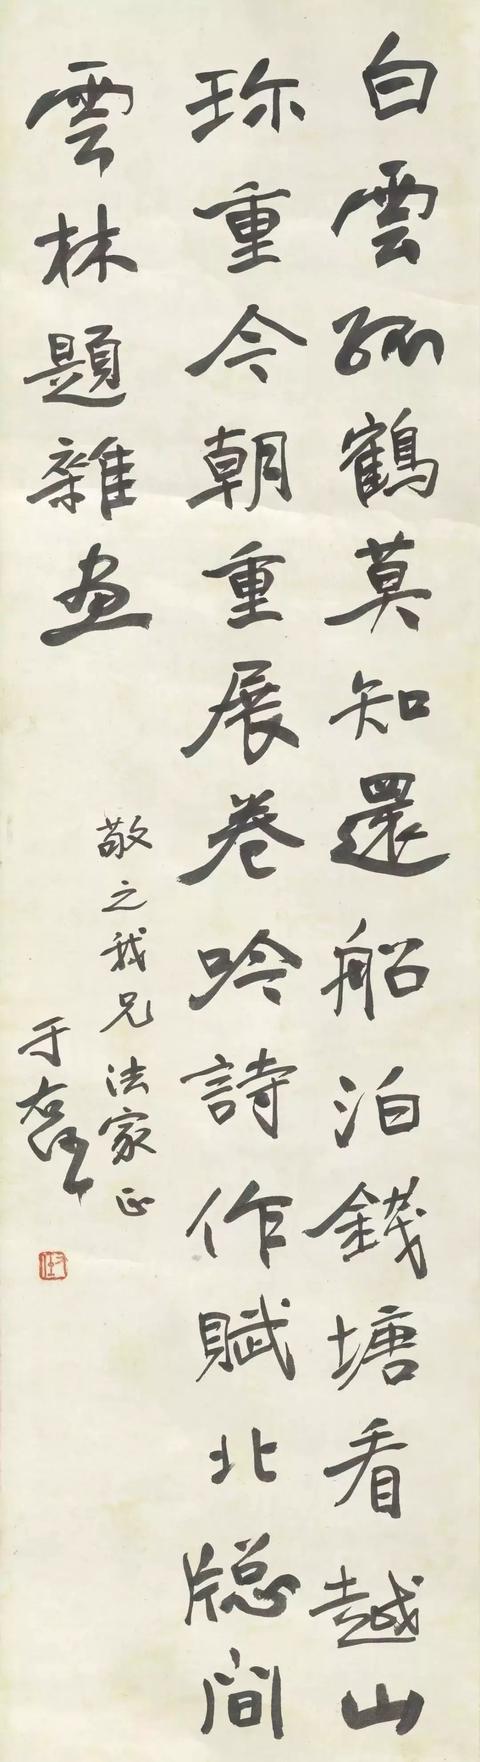 白雲孤鶴莫知還船泊錢塘看越山
珎重今朝重展卷吟詩作賦北牕間
雲林題雜畫
敬之我兄法家正
于右任